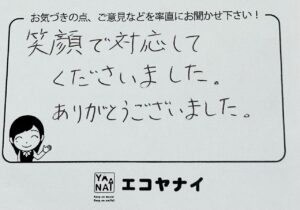 お気づきの点、ご意見などを率直にお聞かせ下さい！
笑顔で対応して
くださいました。
ありがとうございました。
YA
NAI
エコヤナイ